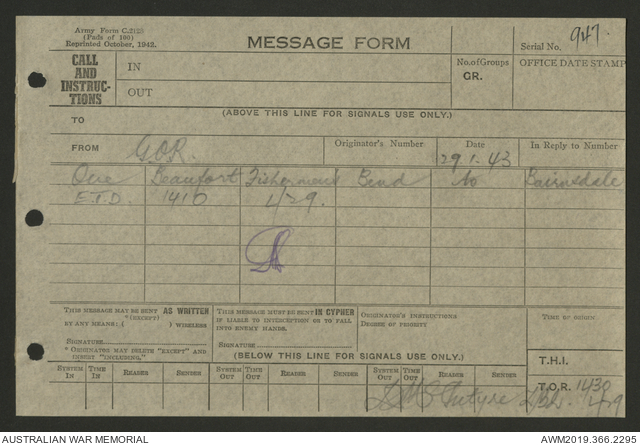 Army Form C.2128
(Pads of 100)
Reprinted October, 1942.
MESSAGE FORM
Serial No. 947.
CALL AND INSTRUC-TIONS
IN
OUT
No. of Groups
GR.
OFFICE DATE STAMP
(ABOVE THIS LINE FOR SIGNALS USE ONLY.)
TO
FROM G.O.R.
Originator's Number
Date
29.1.43
In Reply to Number
One Beaufort Fishermens Bend to Bairnsdale
E.T.D. 1410 4/29.
THIS MESSAGE MAY BE SENT AS WRITTEN
*(EXCEPT)
BY ANY MEANS: ( ) WIRELESS
SIGNATURE
* ORIGINATORS MAY DELETE "EXCEPT" AND
INSERT "INCLUDING."
THIS MESSAGE MUST BE SENT IN CYPHER
IF LIABLE TO INTERCEPTION OR TO FALL
INTO ENEMY HANDS.
SIGNATURE
ORIGINATOR'S INSTRUCTIONS
DEGREE OF PRIORITY
TIME OF ORIGIN
(BELOW THIS LINE FOR SIGNALS USE ONLY.)
T.H.I.
SYSTEM IN
TIME IN
READER
SENDER
SYSTEM OUT
TIME OUT
READER
SENDER
SYSTEM OUT
TIME OUT
READER
SENDER
T.O.R. 1430
4/29
AUSTRALIAN WAR MEMORIAL
AWM2019.366.2295